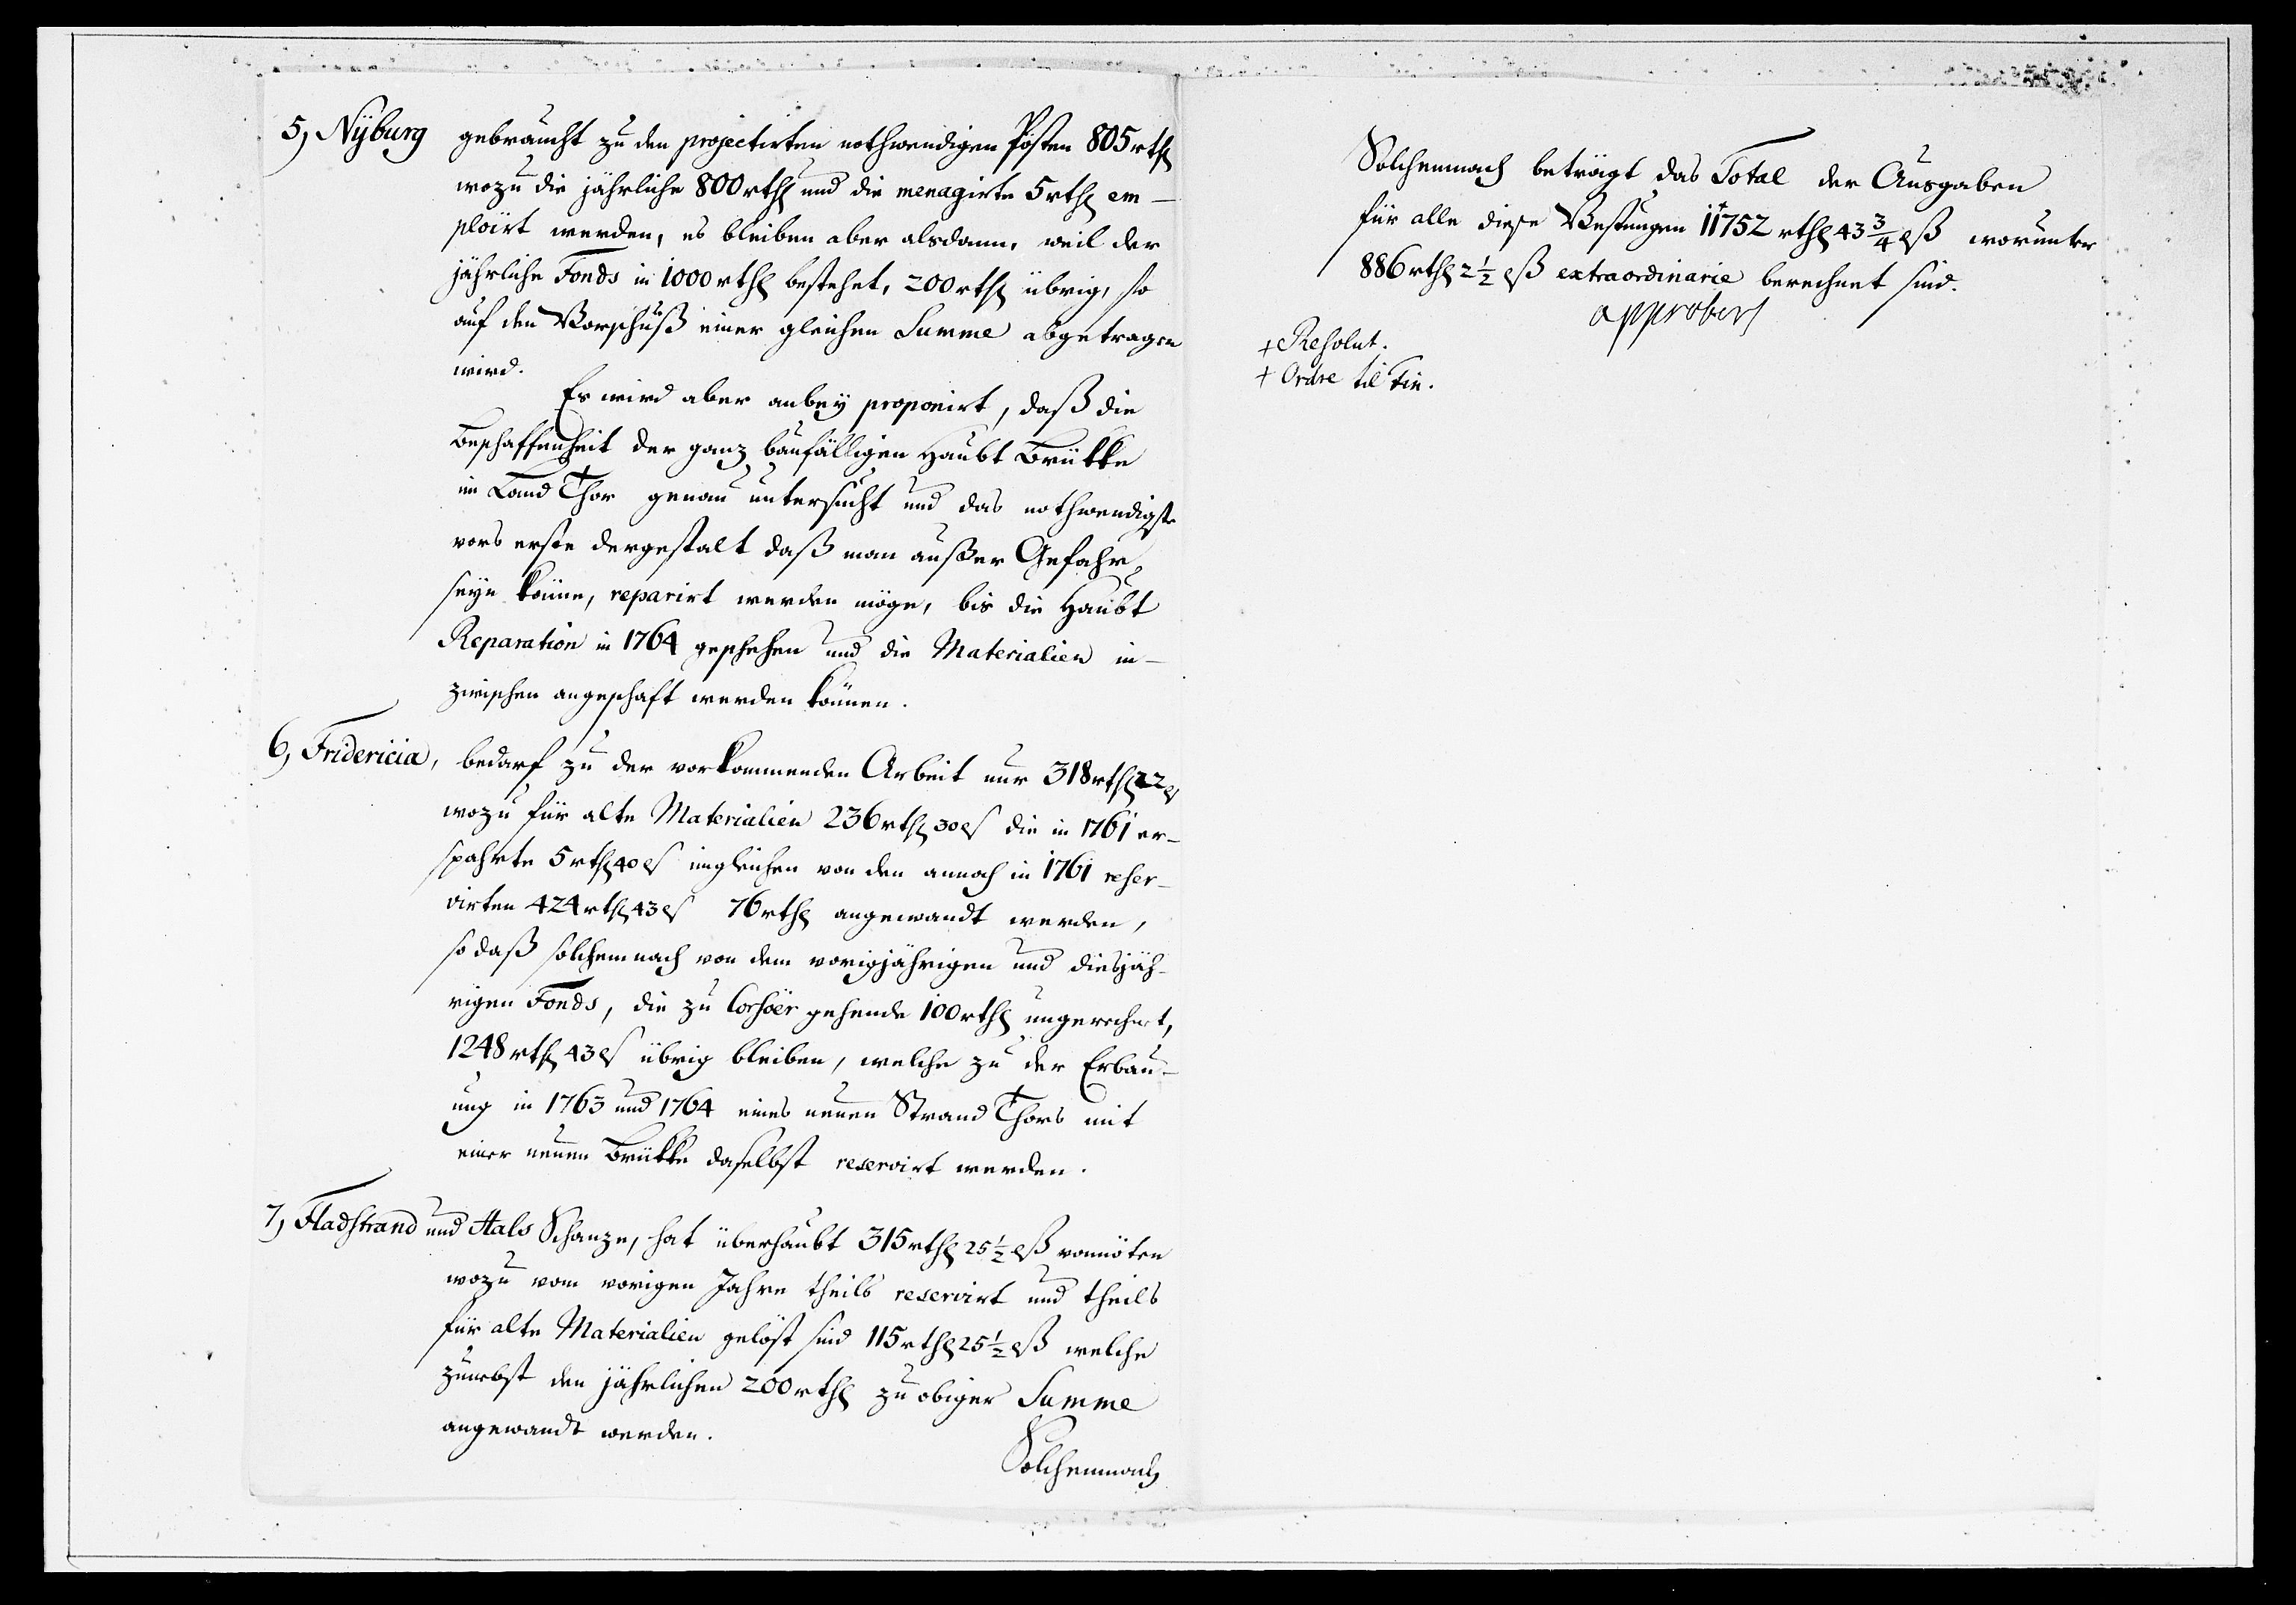 5, Nÿburg gebraucht zu den projectirten nothwendigen Posten 805 rthl
wozu die jährliche 800 rthl und die menagirte 5 rthl em-
ploirt werden, es bleiben aber alsdann, weil der
jährliche Fonds in 1000 rthl bestehet, 200 rthl übrig, so
auf den Vorschuß einer gleichen Summe abgetragen
wird.
Es wird aber anbeÿ proponirt, daß die
Beschaffenheit der ganz baufälligen Haubt Brükke
im Land Thor genau untersucht und das nothwendigste
vors erste dergestalt daß man außer Gefahr
seÿn könne, reparirt werden möge, bis die Haubt
Reparation in 1764 geschehen und die Materialien in-
zwischen angeschaft werden können.
6, Fridericia, bedarf zu der vorkommenden Arbeit nur 318 rthl 22 ß
wozu für alte Materialien 236 rthl 30 ß die in 1761 er-
spahrte 5 rthl 40 ß imgleichen von den annoch in 1761 reser-
virten 424 rthl 43 ß 76 rthl angewandt werden,
so daß solchemnach von dem vorigjährigen und diesjäh-
rigen Fonds, die zu Corsöer gehende 100 rthl ungerechnet,
1248 rthl 43 ß übrig bleiben, welche zu der Erbau-
ung in 1763 und 1764 eines neuen Strand Thors mit
einer neuen Brükke daselbst reservirt werden.
7, Fladstrand und Hals Schanze, hat überhaubt 315 rthl 25 1/2 lß vonnöten
wozu vom vorigen Jahre theils reservirt und theils
für alte Materialien gelöst sind 115 rthl 25 1/2 lß welche
zunebst den jährlichen 200 rthl zu obiger Summe
angewandt werden.
Solchemnach
Solchemnach beträgt das Total der Ausgaben
für alle diese Vestungen 11752 rthl 43 3/4 lß worunter
886 rthl 2 1/2 lß extraordinarie berechnet sind.
approbert
+ Resolut.
+ Ordre til Fin.